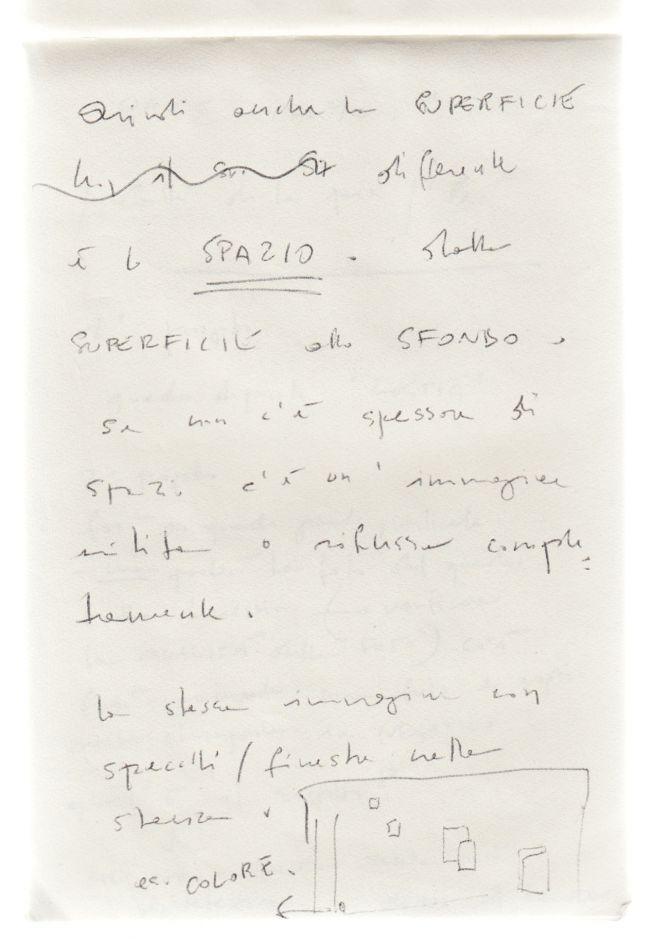 Quindi anche la SUPERFICIE
differente
è lo SPAZIO. dalla
SUPERFICIE allo SFONDO.
se non c'è spessore di
spazi. c'è un' immagine
o riflessa comple=
tamente.
la stessa immagine con
specchi / finestre nella
stanza.
es. COLORE.